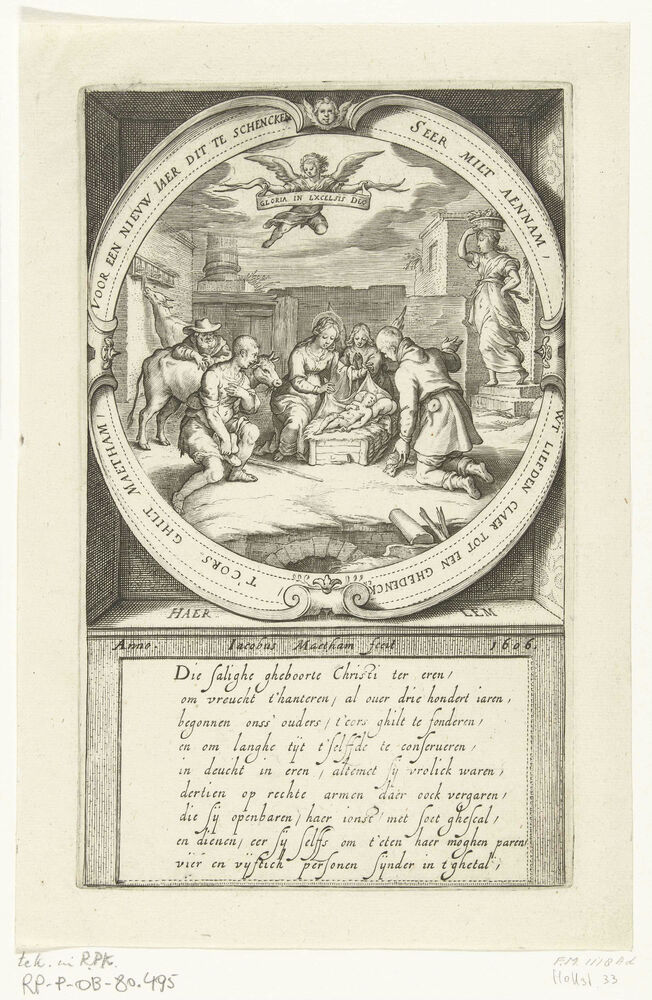 VOOR EEN NIEVW IAER DIT TE SCHENCKEN
SEER MILT AENNAM,
WT LIEFDEN CLAER TOT EEN GHEDENCKEN
T'CORS GHILT MAETHAM,
GLORIA IN EXCELSIS DEO
HAER LEM
Anno. Iacobus Maetham fecit 1606.
Die salighe gheboorte Christi ter eren,
om vreucht t'hanteren, al over drie hondert iaren,
begonnen onss' ouders, t'cors ghilt te fonderen,
en om langhe tijt t'selffde te conserveren,
in deucht in eren, altemet sij vrolick waren,
dertien op rechte armen daer oock vergaren,
die sij openbaren, haer ionste met soet gheschal,
en dienen, eer sij selfs om t'eten haer moghen paren
vier en vijftich personen sijnder in t'ghetal,
tek. in RPK.
RP-P-OB-80.495
F.M. 1118Ad
Hollst. 33